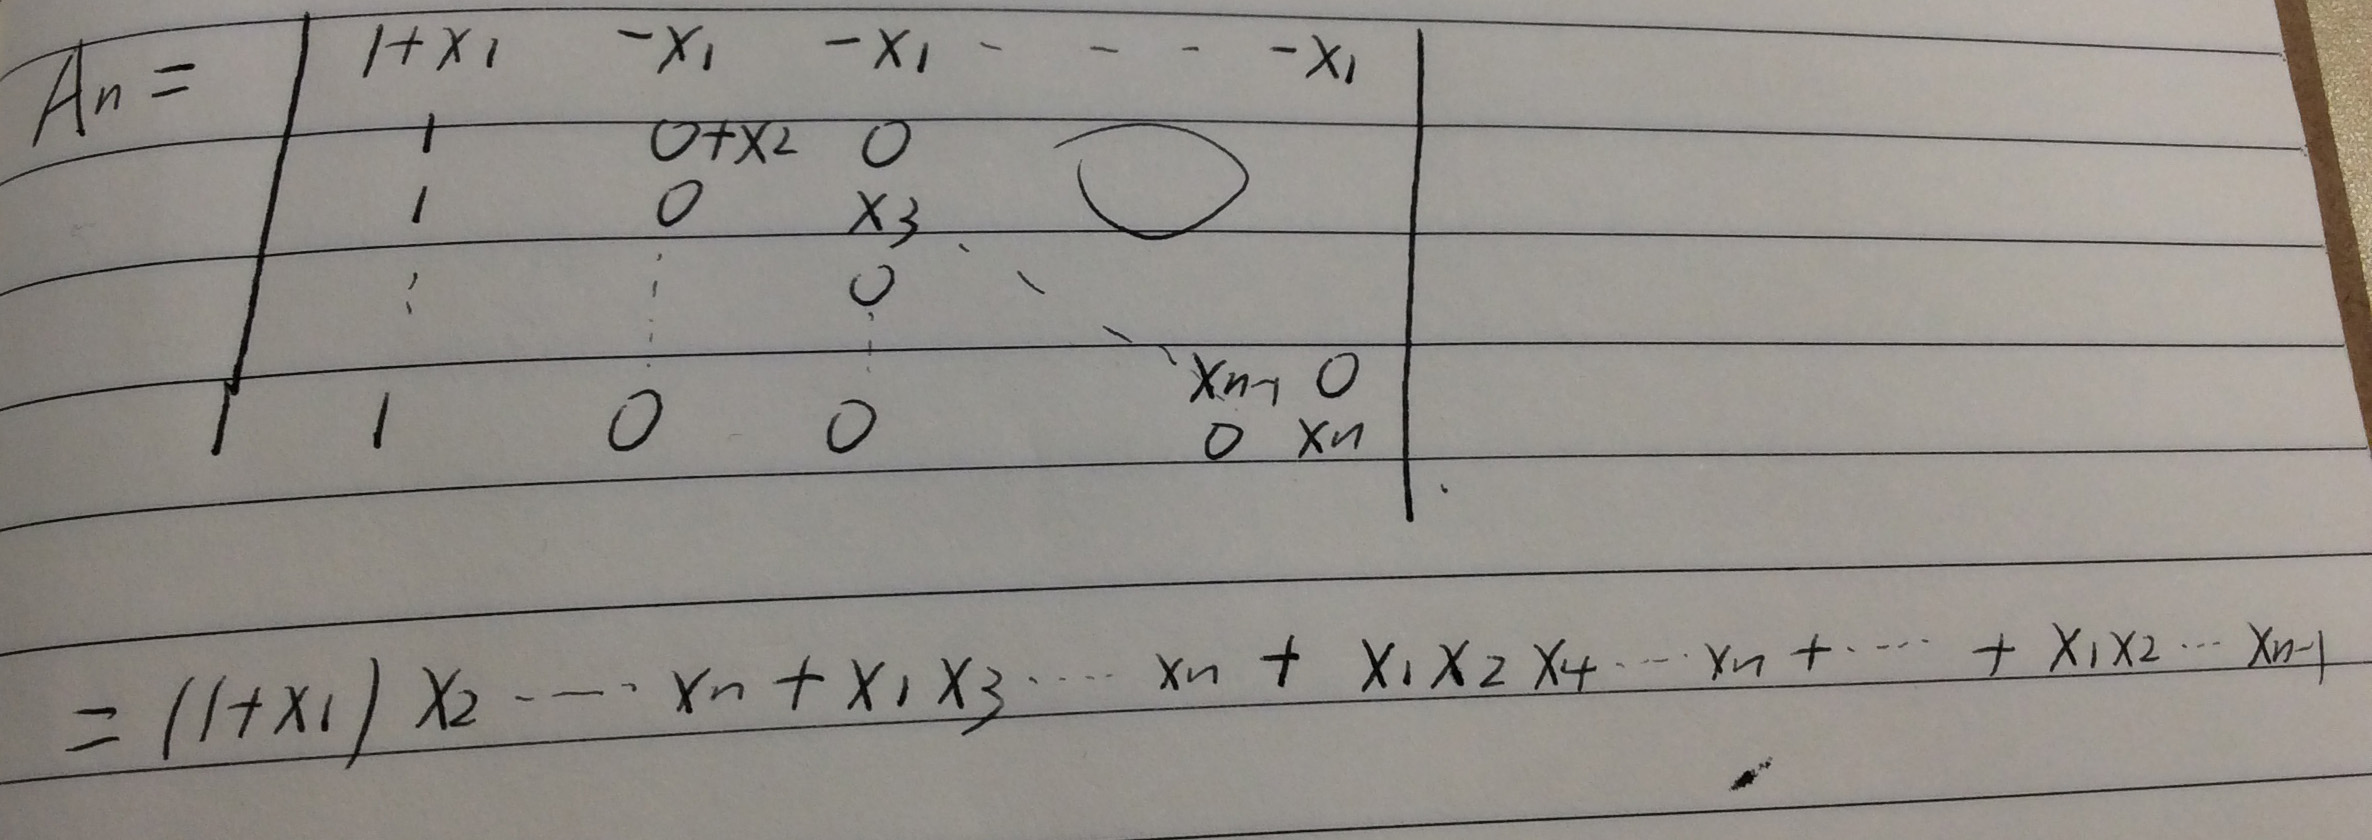 An = | 1+x1 -x1 -x1 - - - -x1 |
1 0+x2 0 0
1 0 x3
⋮ ⋮ 0 ⋱
xn-1 0
1 0 0 0 xn
= (1+x1) x2 ⋯ xn + x1 x3 ⋯ xn + x1 x2 x4 ⋯ xn + ⋯ + x1 x2 ⋯ xn-1